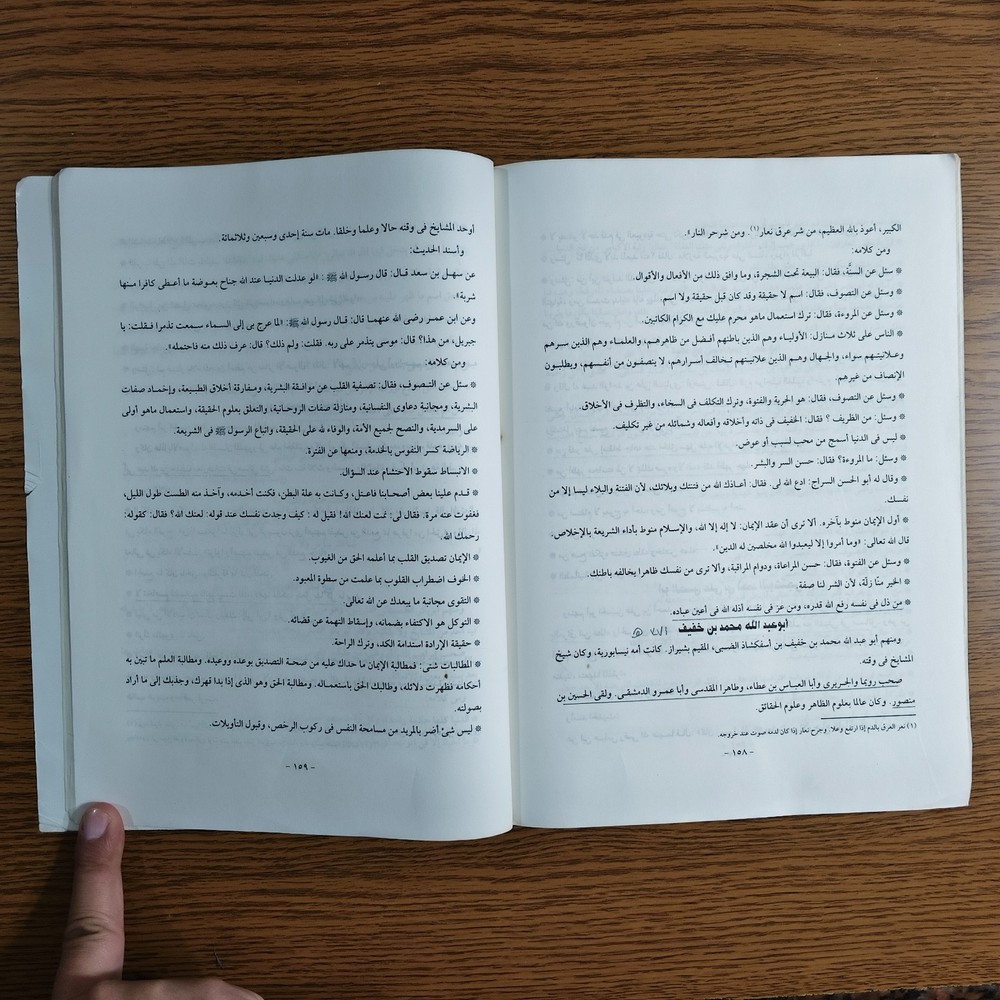 الكبير، أعوذ بالله العظيم، من شر عرق نعار(١). ومن شرحر النار».
ومن كلامه:
* سئل عن السنَّة، فقال: البيعة تحت الشجرة، وما وافق ذلك من الأفعال والأقوال.
* وسئل عن التصوف، فقال: اسم لا حقيقة وقد كان قبل حقيقة ولا اسم.
* وسئل عن المروءة، فقال: ترك استعمال ماهو محرم عليك مع الكرام الكاتبين.
* الناس على ثلاث منازل: الأولياء وهم الذين باطنهم أفضل من ظاهرهم، والعلماء وهم الذين سرهم
وعلانيتهم سواء، والجهال وهم الذين علانيتهم تخالف أسرارهم، لا ينصفون من أنفسهم، ويطلبون
الإنصاف من غيرهم.
* وسئل عن التصوف، فقال: هو الحرية والفتوة، وترك التكلف فى السخاء، والتظرف فى الأخلاق.
* وسئل: من الظريف ؟ فقال: الخفيف فى ذاته وأخلاقه وأفعاله وشمائله من غير تكليف.
* ليس فى الدنيا أسمج من محب لسبب أو عوض.
* وسئل: ما المروءة؟ فقال: حسن السر والبشر.
* وقال له أبو الحسن السراج: ادع الله لى. فقال: أعاذك الله من فتنتك وبلائك، لأن الفتنة والبلاء ليسا إلا من
نفسك.
* أول الإيمان منوط بآخره. ألا ترى أن عقد الإيمان: لا إله إلا الله، والإسلام منوط بأداء الشريعة بالإخلاص.
قال الله تعالى: «وما أمروا إلا ليعبدوا الله مخلصين له الدين».
* وسئل عن الفتوة، فقال: حسن المراعاة، ودوام المراقبة، وألا ترى من نفسك ظاهرا يخالفه باطنك.
* الخير منّا زلّة، لأن الشر لنا صفة.
* من ذل فى نفسه رفع الله قدره، ومن عز فى نفسه أذله الله فى أعين عباده.
أبو عبد الله محمد بن خفيف
ومنهم أبو عبد الله محمد بن خفيف بن أسفكشاذ الضبى، المقيم بشيراز. كانت أمه نيسابورية، وكان شيخ
المشايخ فى وقته.
صحب رويما والجريرى وأبا العباس بن عطاء، وطاهرا المقدسى وأبا عمرو الدمشقى. ولقى الحسين بن
منصور. وكان عالما بعلوم الظاهر وعلوم الحقائق.
(١) نعر العرق بالدم إذا ارتفع وعلا. وجرح نعار إذا كان لدمه صوت عند خروجه.
- ١٥٨ -
أوحد المشايخ فى وقته حالا وعلما وخلقا. مات سنة إحدى وسبعين وثلاثمائة.
وأسند الحديث:
عن سهل بن سعد قال: قال رسول الله ﷺ : «لو عدلت الدنيا عند الله جناح بعوضة ما أعطى كافرا منها
شربة».
وعن ابن عمر رضى الله عنهما قال: قال رسول الله ﷺ: «لما عرج بى إلى السماء سمعت تذمرا فقلت: يا
جبريل، من هذا؟ قال: موسى يتذمر على ربه. فقلت: ولم ذلك؟ قال: عرف ذلك منه فاحتمله».
ومن كلامه:
* سئل عن التصوف، فقال: تصفية القلب عن موافقة البشرية، ومفارقة أخلاق الطبيعة، وإخماد صفات
البشرية، ومجانبة دعاوى النفسانية، ومنازلة صفات الروحانية، والتعلق بعلوم الحقيقة، واستعمال ماهو أولى
على السرمدية، والنصح لجميع الأمة، والوفاء لله على الحقيقة، واتباع الرسول ﷺ فى الشريعة.
* الرياضة كسر النفوس بالخدمة، ومنعها عن الفترة.
* الانبساط سقوط الاحتشام عند السؤال.
* قدم علينا بعض أصحابنا فاعتل، وكانت به علة البطن، فكنت أخدمه، وآخذ منه الطست طول الليل،
فغفوت عنه مرة. فقال لى: نمت لعنك الله! فقيل له : كيف وجدت نفسك عند قوله: لعنك الله؟ فقال: كقوله:
رحمك الله.
* الإيمان تصديق القلب بما أعلمه الحق من الغيوب.
* الخوف اضطراب القلوب بما علمت من سطوة المعبود.
* التقوى مجانبة ما يبعدك عن الله تعالى.
* التوكل هو الاكتفاء بضمانه، وإسقاط التهمة عن قضائه.
* حقيقة الإرادة استدامة الكد، وترك الراحة.
* المطالبات شتى: فمطالبة الإيمان ما حداك عليه من صحة التصديق بوعده ووعيده. ومطالبة العلم ما تبين به
أحكامه فظهرت دلائله، وطالبك الحق باستعماله. ومطالبة الحق وهو الذى إذا بدا قهرك، وجذبك إلى ما أراد
بصولته.
* ليس شئ أضر بالمريد من مسامحة النفس فى ركوب الرخص، وقبول التأويلات.
- ١٥٩ -